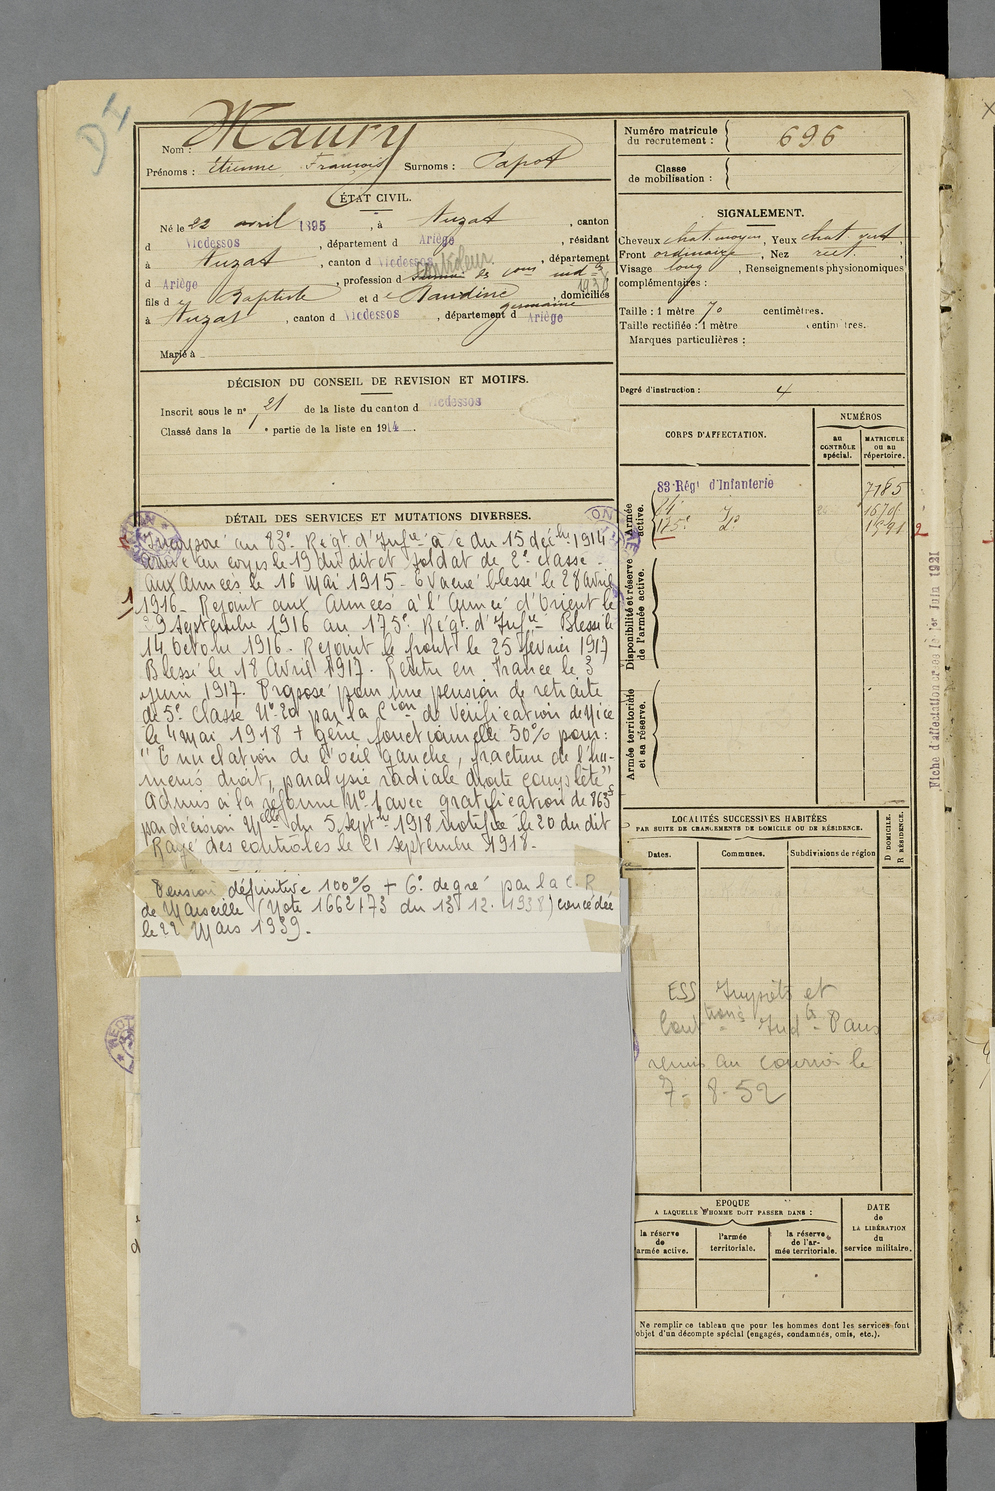 DI
Nom : Maury
Prénoms : Etienne François Surnoms : Papot
ÉTAT CIVIL.
Né le 22 avril 1895, à Auzat, canton
d Vicdessos, département d Ariège, résidant
à Auzat, canton d Vicdessos, département
d Ariège, profession d Contrôleur des Cons ind tes
1930
fils d e Baptiste et d e Naudine germaine, domiciliés
à Auzat, canton d Vicdessos, département d Ariège
Marié à
DÉCISION DU CONSEIL DE REVISION ET MOTIFS.
Inscrit sous le nº 21 de la liste du canton d Vicdessos
Classé dans la 1e partie de la liste en 1914.
DÉTAIL DES SERVICES ET MUTATIONS DIVERSES.
Incorporé au 83e Régt d'Infie à c du 15 décbre 1914
arrivé au corps le 19 du dit et soldat de 2e classe.
Aux Armées le 16 Mai 1915. Evacué blessé le 28 avril
1916. Rejoint aux Armées à l'Armée d'Orient le
29 Septembre 1916 au 175e Régt d'Infie Blessé le
14 Octobre 1916. Rejoint le front le 25 février 1917
Blessé le 18 Avril 1917 Rentre en France le 3
juin 1917. Proposé pour une pension de retraite
de 5e classe Nº 20 par la Cion de Vérification de Nice
le 4 mai 1918 + gène fonctionnelle 50% pour :
"Enucléation de l'oeil gauche, fracture de l'hu-
merus droit, paralysie radiale droite complète"
Admis à la réforme Nº 1 avec gratification de 863f
par décision Melle du 5 Septbre 1918 notifiée le 20 du dit
Rayé des contrôles le 21 Septembre 1918.
Pension définitive 100% + 6e degré par la C.R
de Marseille (Note 1662173 du 13 12. 1938) concédée
le 22 Mars 1939.
Numéro matricule du recrutement : 696
Classe de mobilisation :
SIGNALEMENT.
Cheveux chat. moyen, Yeux chat. vert,
Front ordinaire, Nez rect,
Visage long, Renseignements physionomiques
complémentaires :
Taille : 1 mètre 70 centimètres.
Taille rectifiée : 1 mètre centimètres.
Marques particulières :
Degré d'instruction : 4
CORPS D'AFFECTATION.
NUMÉROS
au CONTRÔLE spécial.
MATRICULE ou au répertoire.
Armée active.
83e Régt d'Infanterie 7185
175e
2
Disponibilité et réserve de l'armée active.
Armée territoriale et sa réserve.
Fiche d'affectation créée le 1er Juin 1921
LOCALITÉS SUCCESSIVES HABITÉES
PAR SUITE DE CHANGEMENTS DE DOMICILE OU DE RÉSIDENCE.
Dates. Communes. Subdivisions de région
D DOMICILE. R RÉSIDENCE.
ESS Impôts et
Conttions Indtes Paris
remis au courrier le
7-8-52
EPOQUE
A LAQUELLE L'HOMME DOIT PASSER DANS :
la réserve de armée active.
l'armée territoriale.
la réserve de l'armée territoriale.
DATE de LA LIBÉRATION du service militaire.
Ne remplir ce tableau que pour les hommes dont les services font
objet d'un décompte spécial (engagés, condamnés, omis, etc.).